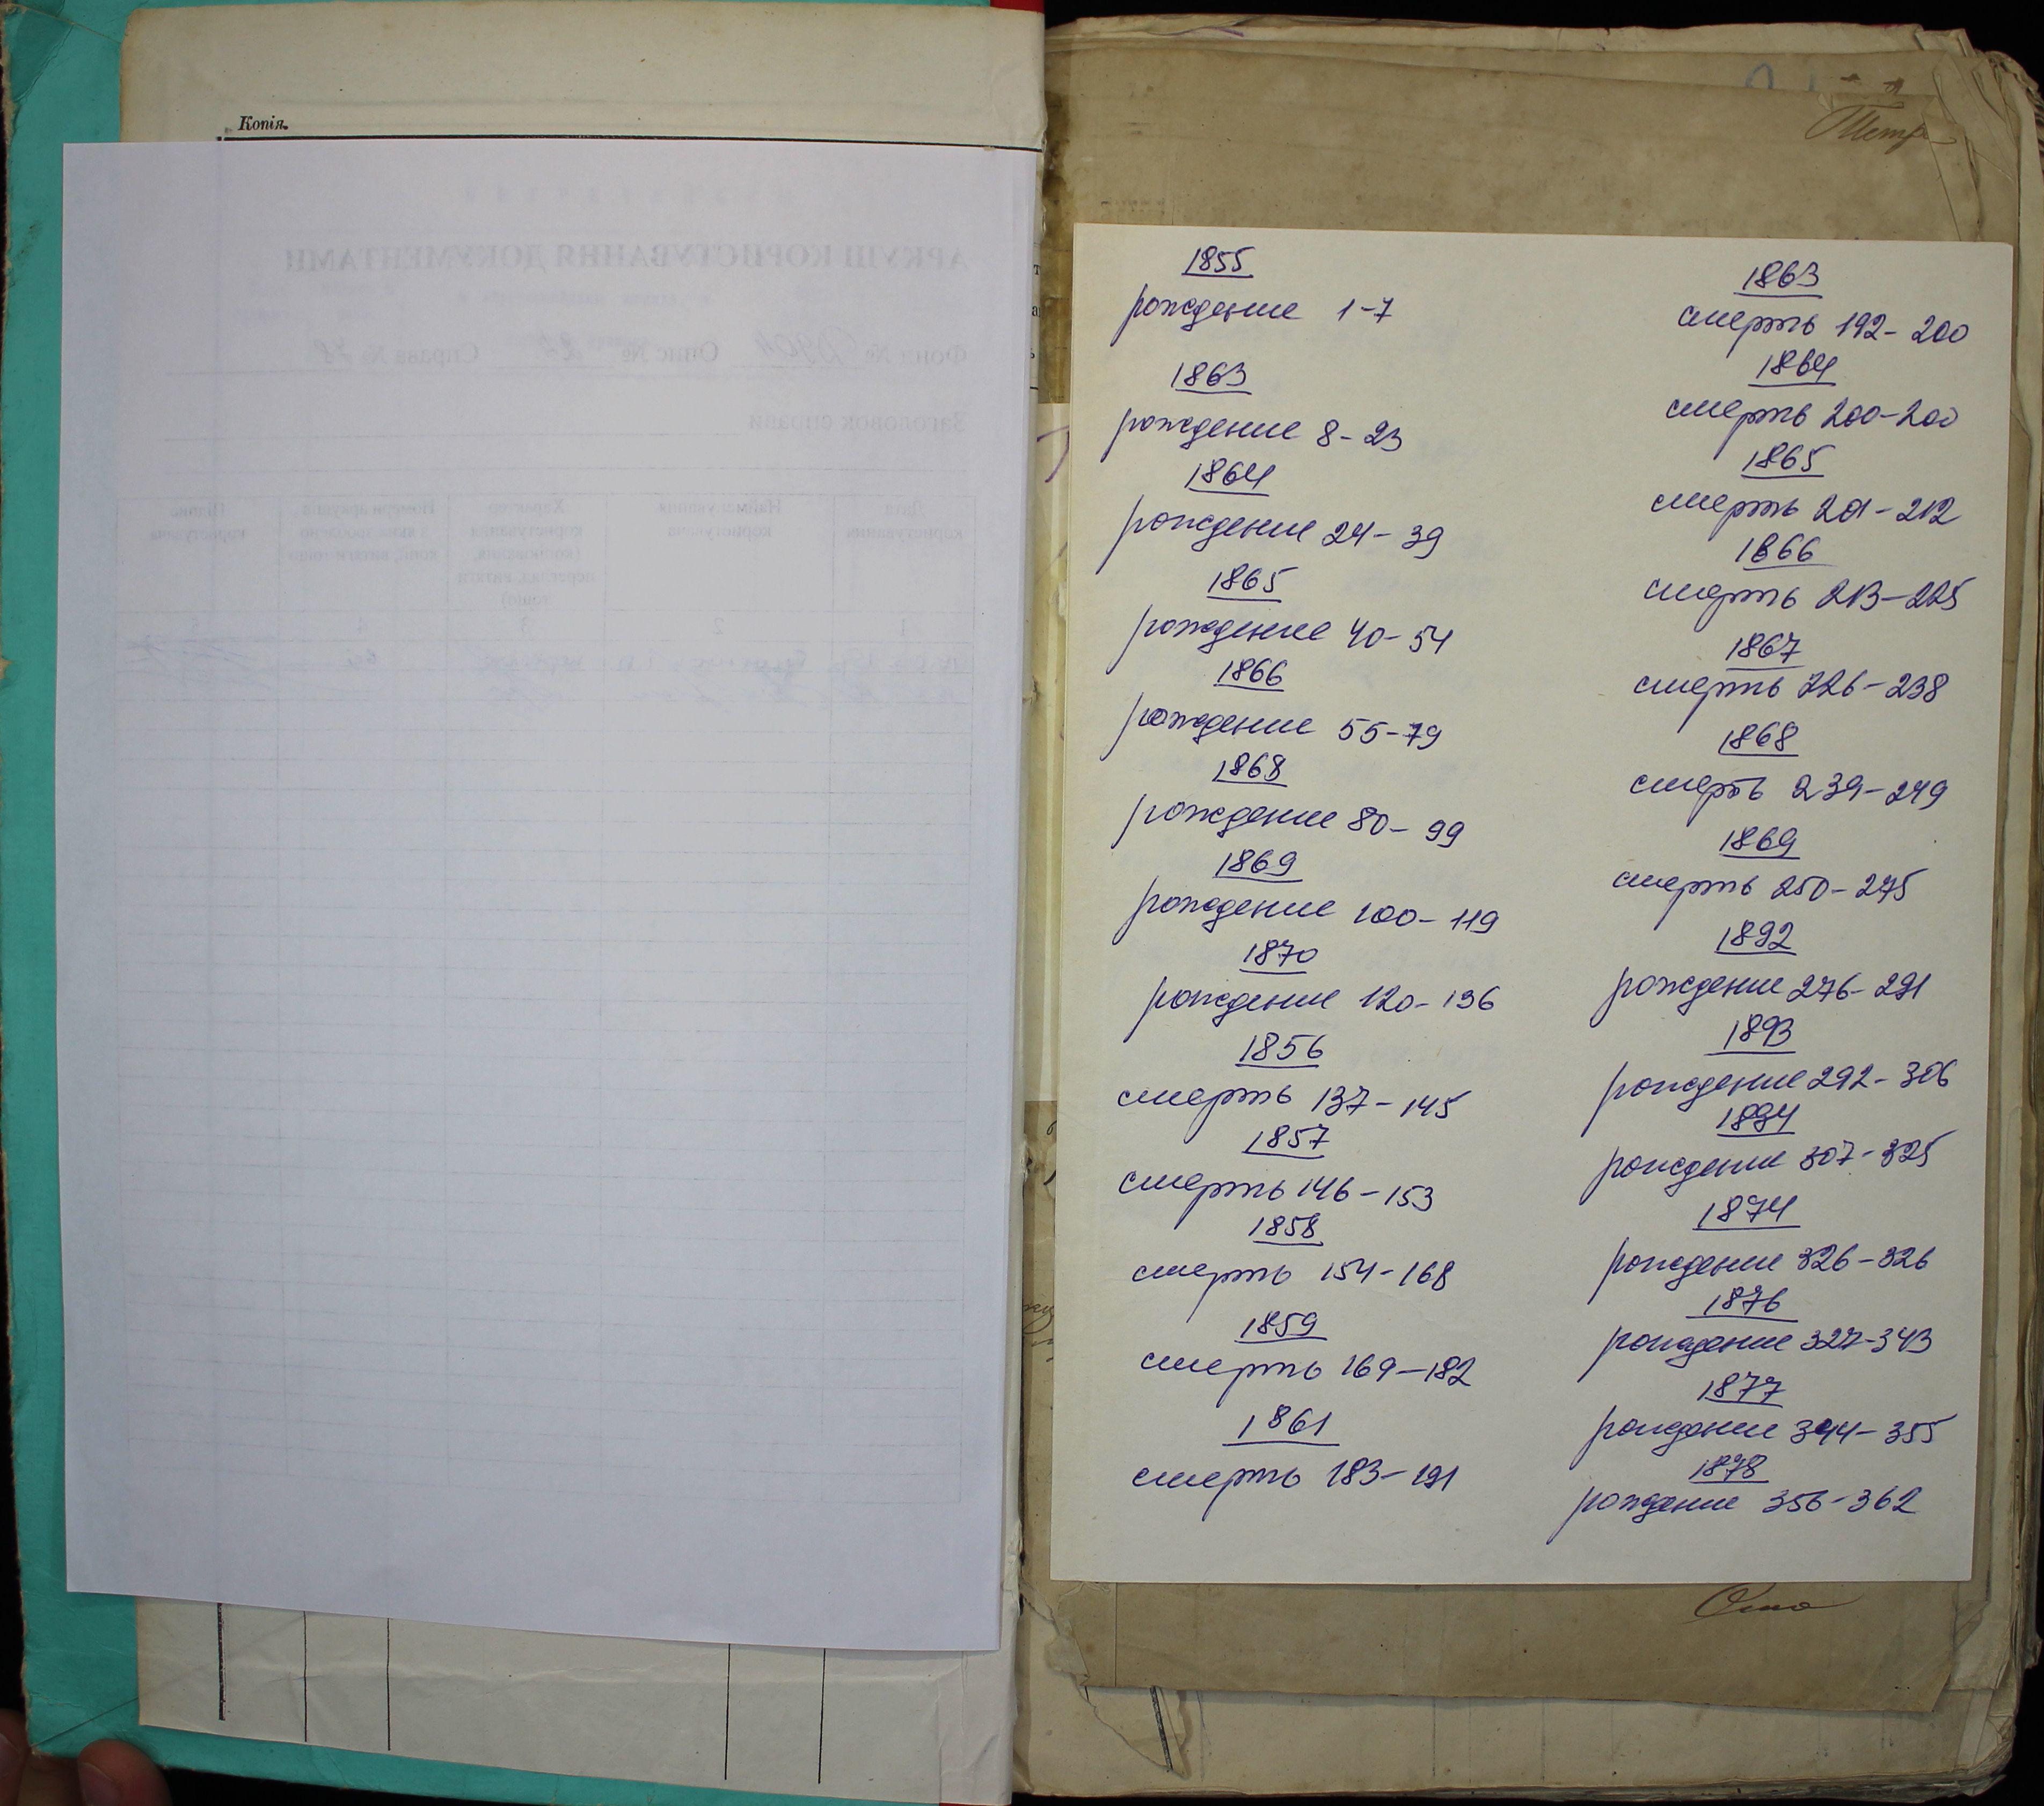 Копія.
АРКУШ КОРИСТУВАННЯ ДОКУМЕНТАМИ
Фонд № Опис № Справа № 78
Заголовок справи
Дата користування
Найменування користувача
Характер користування (копіювання, перегляд, витяги тощо)
Підпис користувача
1 2 3 4
1855
рождение 1-7
1863
рождение 8-23
1864
рождение 24-39
1865
рождение 40-54
1866
рождение 55-79
1868
рождение 80-99
1869
рождение 100-119
1870
рождение 120-136
1856
смерть 137-145
1857
смерть 146-153
1858
смерть 154-168
1859
смерть 169-182
1861
смерть 183-191
1863
смерть 192-200
1864
смерть 200-200
1865
смерть 201-212
1866
смерть 213-225
1867
смерть 226-238
1868
смерть 239-249
1869
смерть 250-275
1892
рождение 276-291
1893
рождение 292-306
1894
рождение 307-325
1874
рождение 326-326
1876
рождение 327-343
1877
рождение 344-355
1878
рождение 356-362